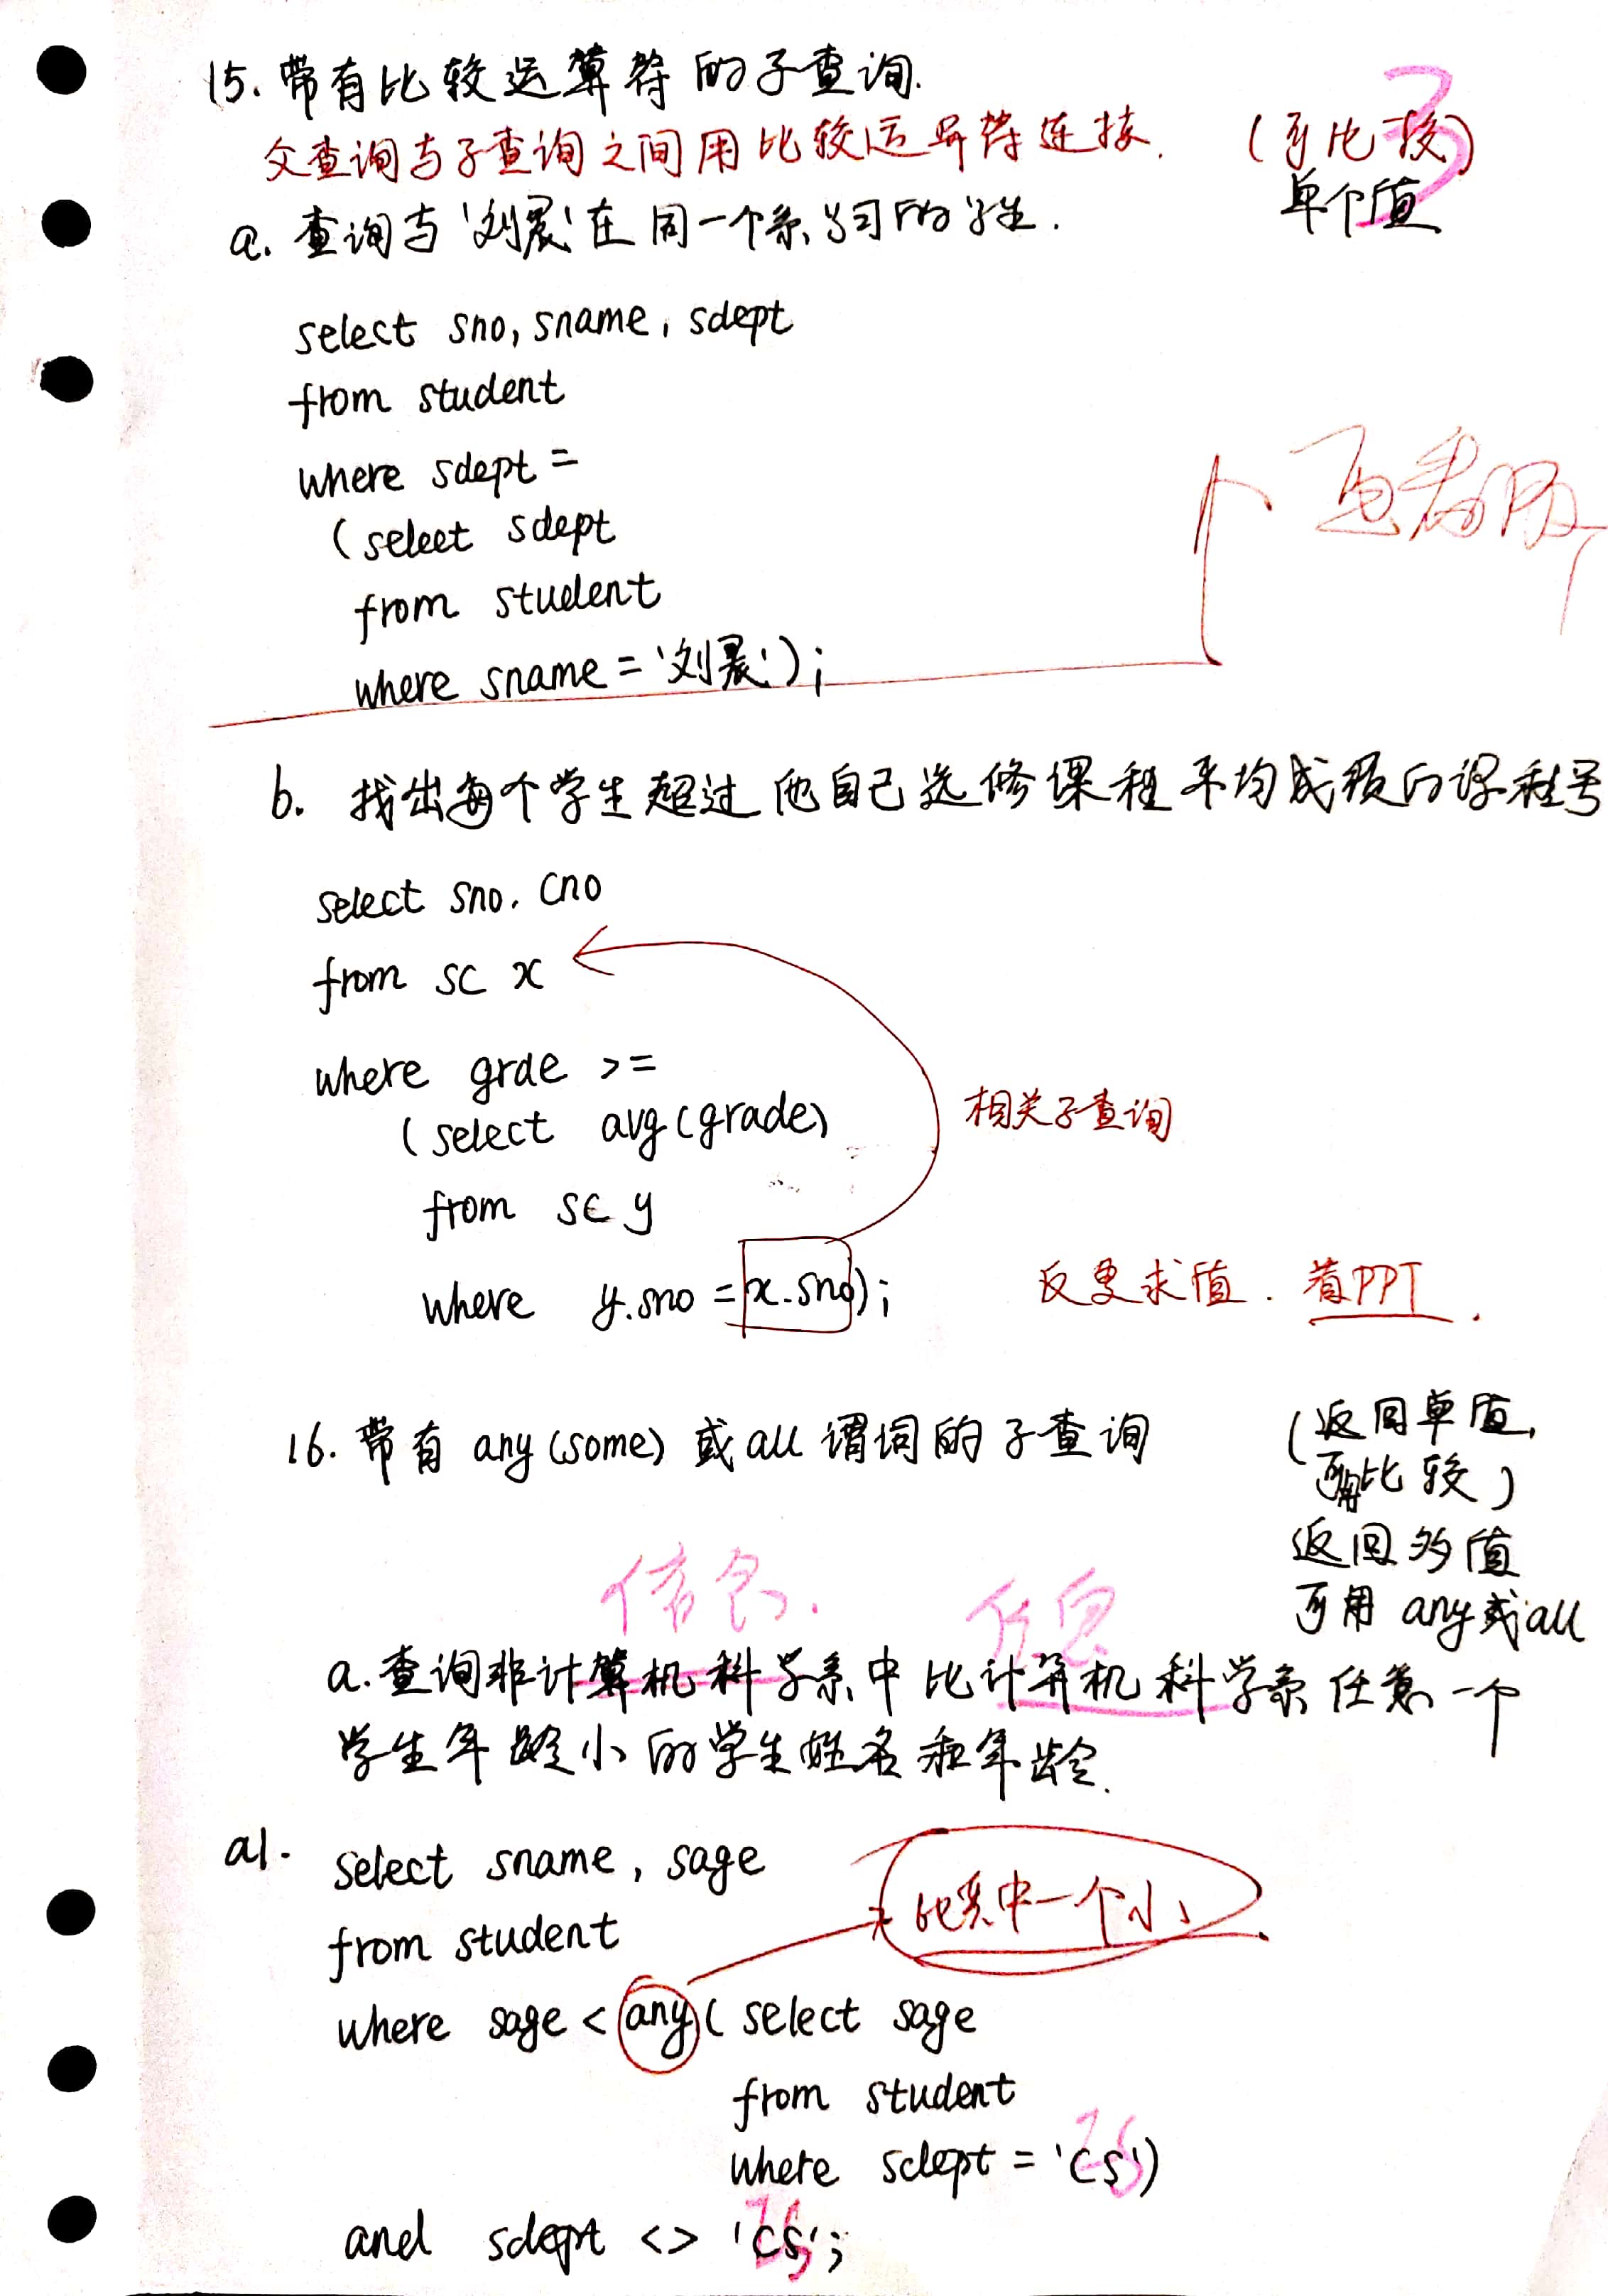 15. 带有比较运算符的子查询.
父查询与子查询之间用比较运算符连接. (可比较)
单个值
a. 查询与'刘晨'在同一个系学习的学生.
select sno, sname, sdept
from student
where sdept =
(select sdept
from student
where sname = '刘晨');
b. 找出每个学生超过他自己选修课程平均成绩的课程号
select sno. cno
from sc x
where grde >=
(select avg(grade)
相关子查询
from sc y
where y.sno = x.sno);
反复求值. 看PPT.
16. 带有 any(some) 或 all 谓词的子查询
(返回单值,
可用比较)
返回多值
可用 any或all
信息.
信息
a. 查询非计算机科学系中比计算机科学系任意一个
学生年龄小的学生姓名和年龄.
a1. select sname, sage
from student
比其中一个小
where sage < any( select sage
from student
where sdept = 'CS')
and sdept <> 'CS';